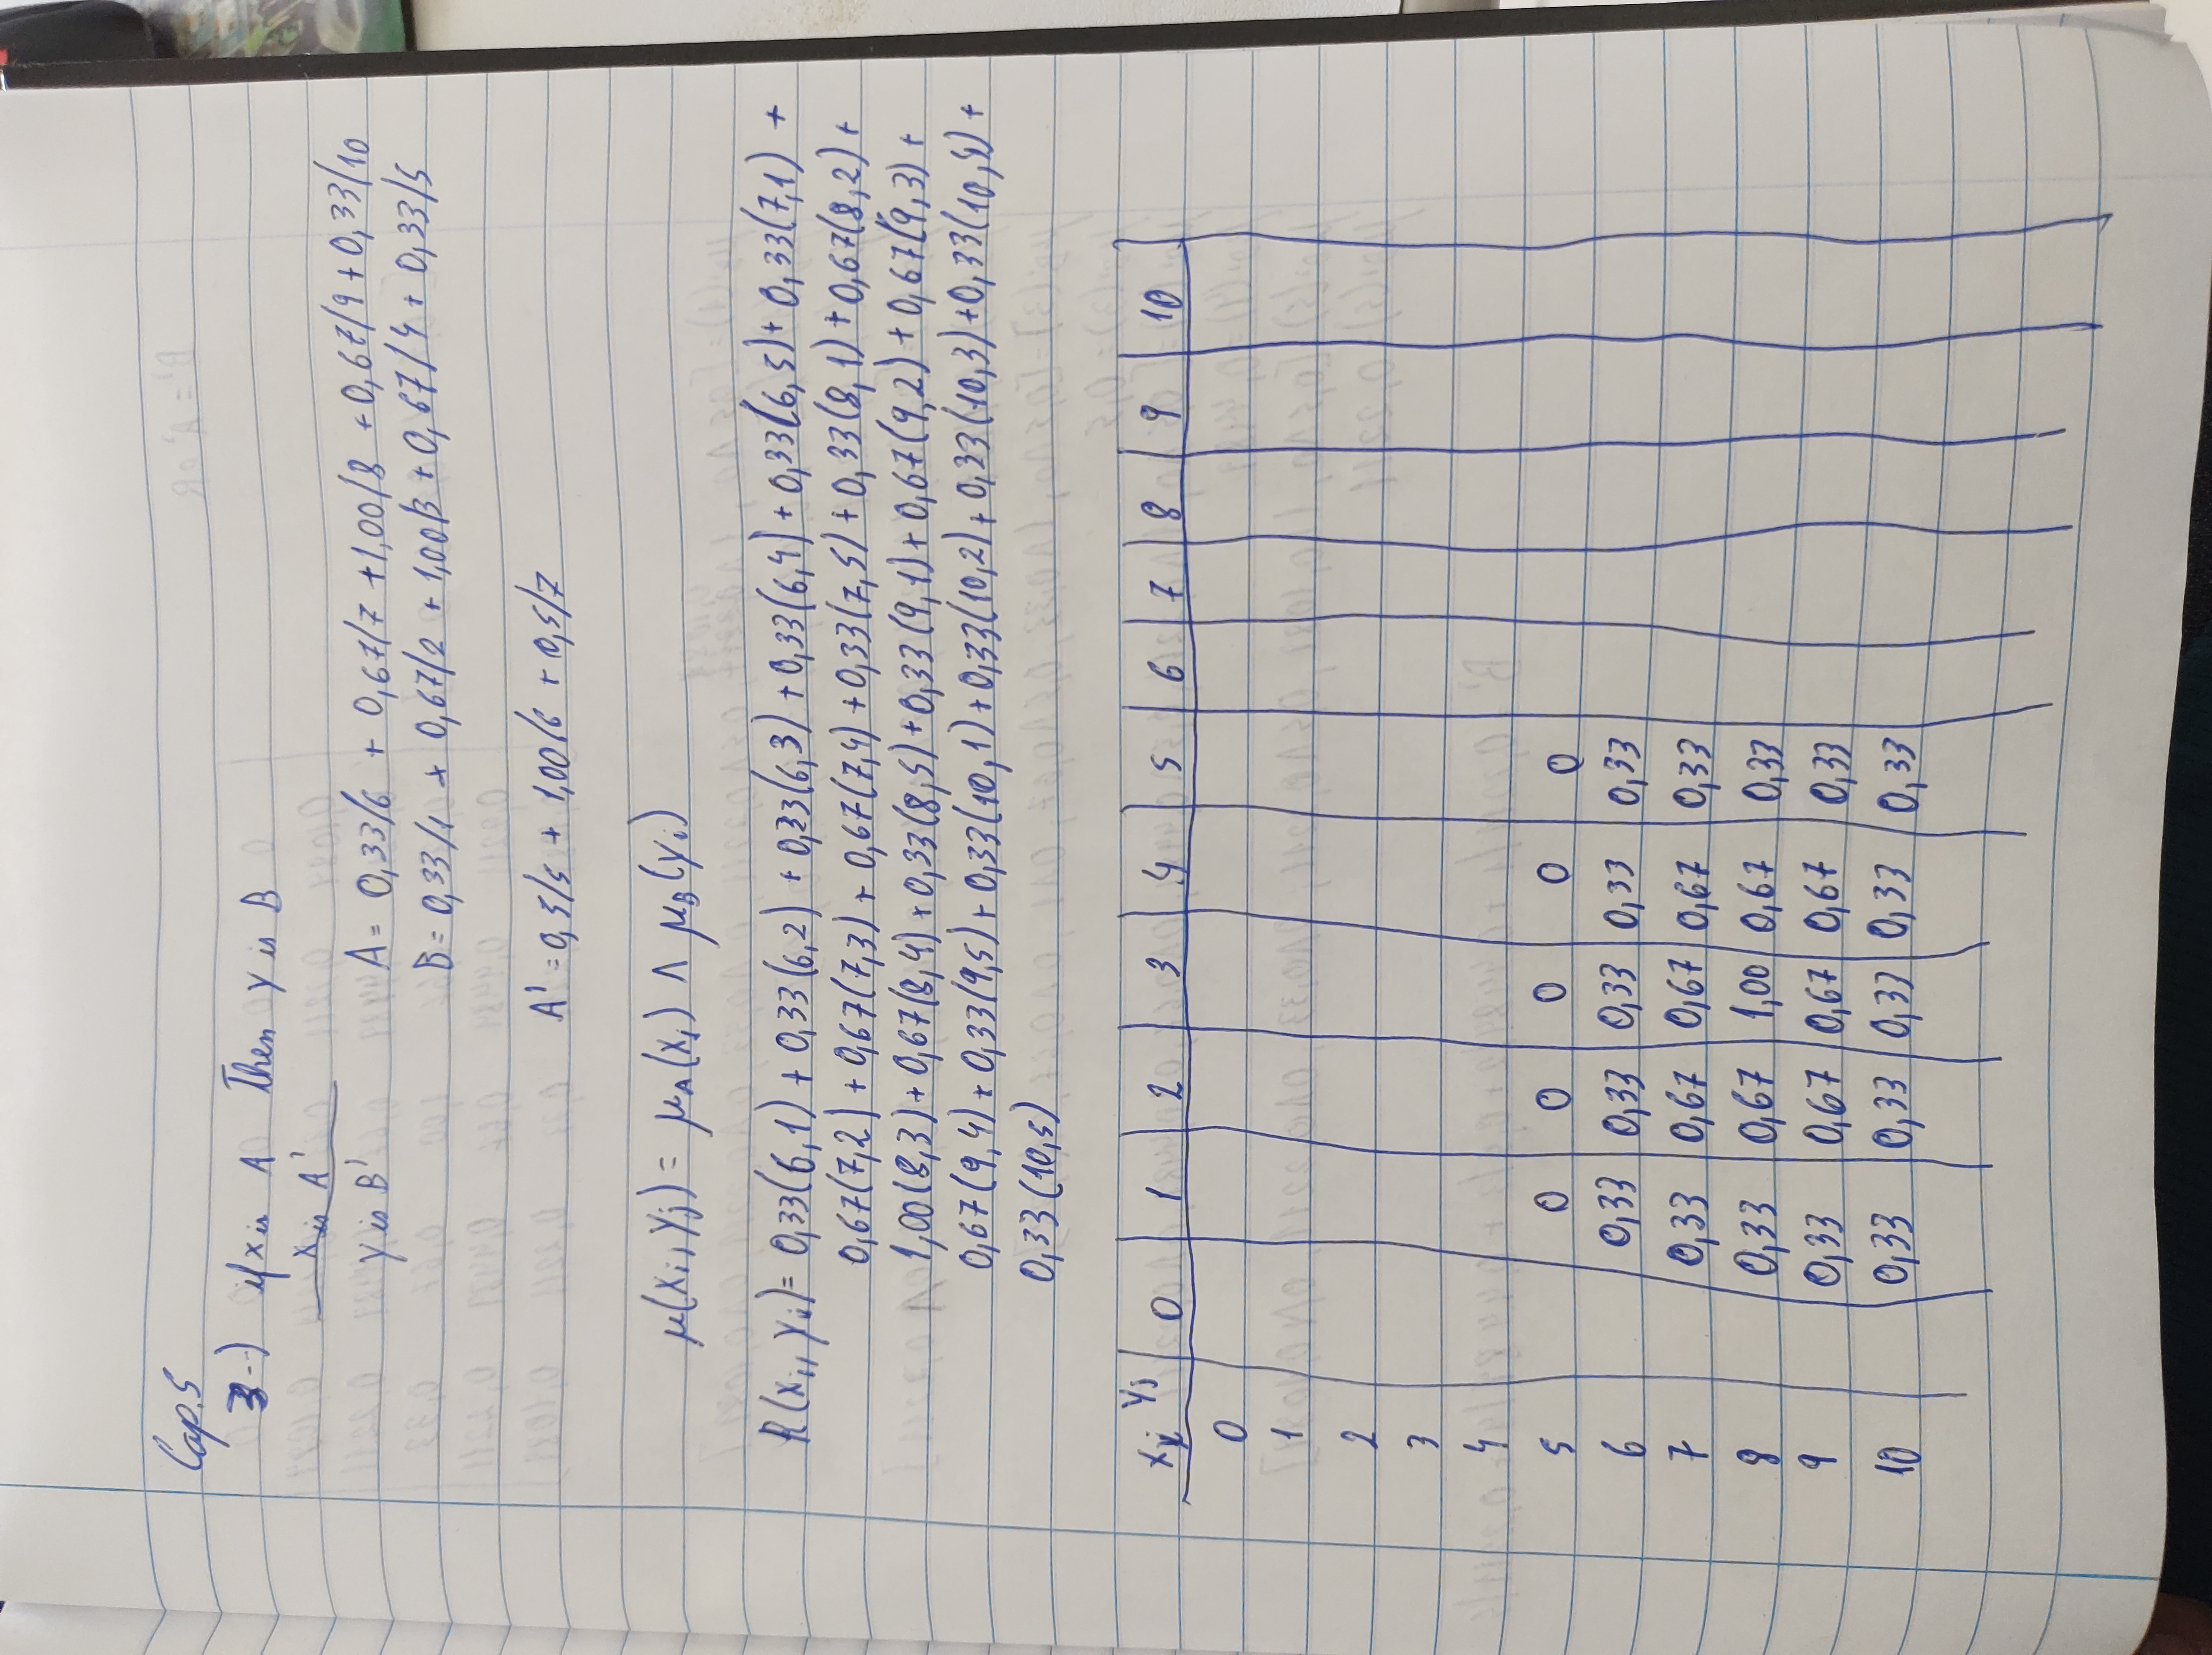 Cap.5
3-) if x is A Then Y is B
x is A'
Y is B'
A = 0,33/6 + 0,67/7 + 1,00/8 + 0,67/9 + 0,33/10
B = 0,33/1 + 0,67/2 + 1,00/3 + 0,67/4 + 0,33/5
A' = 0,5/5 + 1,00/6 + 0,5/7
μ(xi, yj) = μA(xi) Λ μB(yi)
R(xi, yi) = 0,33(6,1) + 0,33(6,2) + 0,33(6,3) + 0,33(6,4) + 0,33(6,5) + 0,33(7,1) +
0,67(7,2) + 0,67(7,3) + 0,67(7,4) + 0,33(7,5) + 0,33(8,1) + 0,67(8,2) +
1,00(8,3) + 0,67(8,4) + 0,33(8,5) + 0,33(9,1) + 0,67(9,2) + 0,67(9,3) +
0,67(9,4) + 0,33(9,5) + 0,33(10,1) + 0,33(10,2) + 0,33(10,3) + 0,33(10,4) +
0,33(10,5)
xi yj 0 1 2 3 4 5 6 7 8 9 10
0
1
2
3
4
5 0 0 0 0 0
6 0,33 0,33 0,33 0,33 0,33
7 0,33 0,67 0,67 0,67 0,33
8 0,33 0,67 1,00 0,67 0,33
9 0,33 0,67 0,67 0,67 0,33
10 0,33 0,33 0,33 0,33 0,33